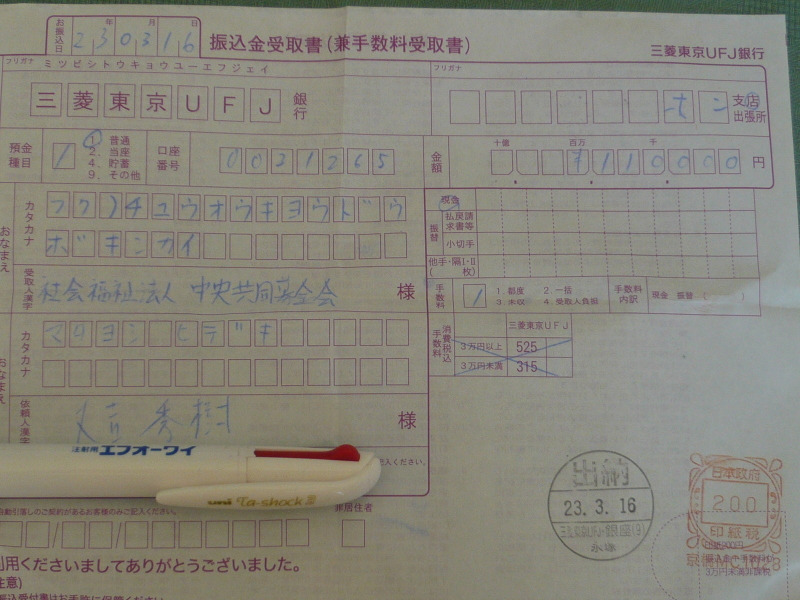 お振込日
年 月 日
230316
振込金受取書(兼手数料受取書)
三菱東京UFJ銀行
フリガナ ミツビシトウキョウユーエフジェイ
三菱東京UFJ 銀行
フリガナ
支店
出張所
預金種目
1
1. 普通
2. 当座
4. 貯蓄
9. その他
口座番号
0021265
金額
十億 百万 千
¥110000 円
おなまえ
カタカナ
フク)チユウオウキヨウドウ
ボキンカイ
受取人漢字
社会福祉法人 中央共同募金会 様
おなまえ
カタカナ
マタヨシ ヒデキ
依頼人漢字
又吉 秀樹 様
現金
振替
払戻請求書等
小切手
他手・隔Ⅰ・Ⅱ
( 枚)
手数料
1
1. 都度 2. 一括
3. 未収 4. 受取人負担
手数料内訳
現金 振替 ( )
消費税込手数料
三菱東京UFJ
3万円以上 525
3万円未満 315
注射用 エフオーワイ
uni Ta-shock
記入ください。
自動引落しのご契約があるお客様のみご記入ください。
非居住者
出納
23.3.16
日本政府
200
印紙税
3万円未満非課税
利用くださいましてありがとうございました。
注意)